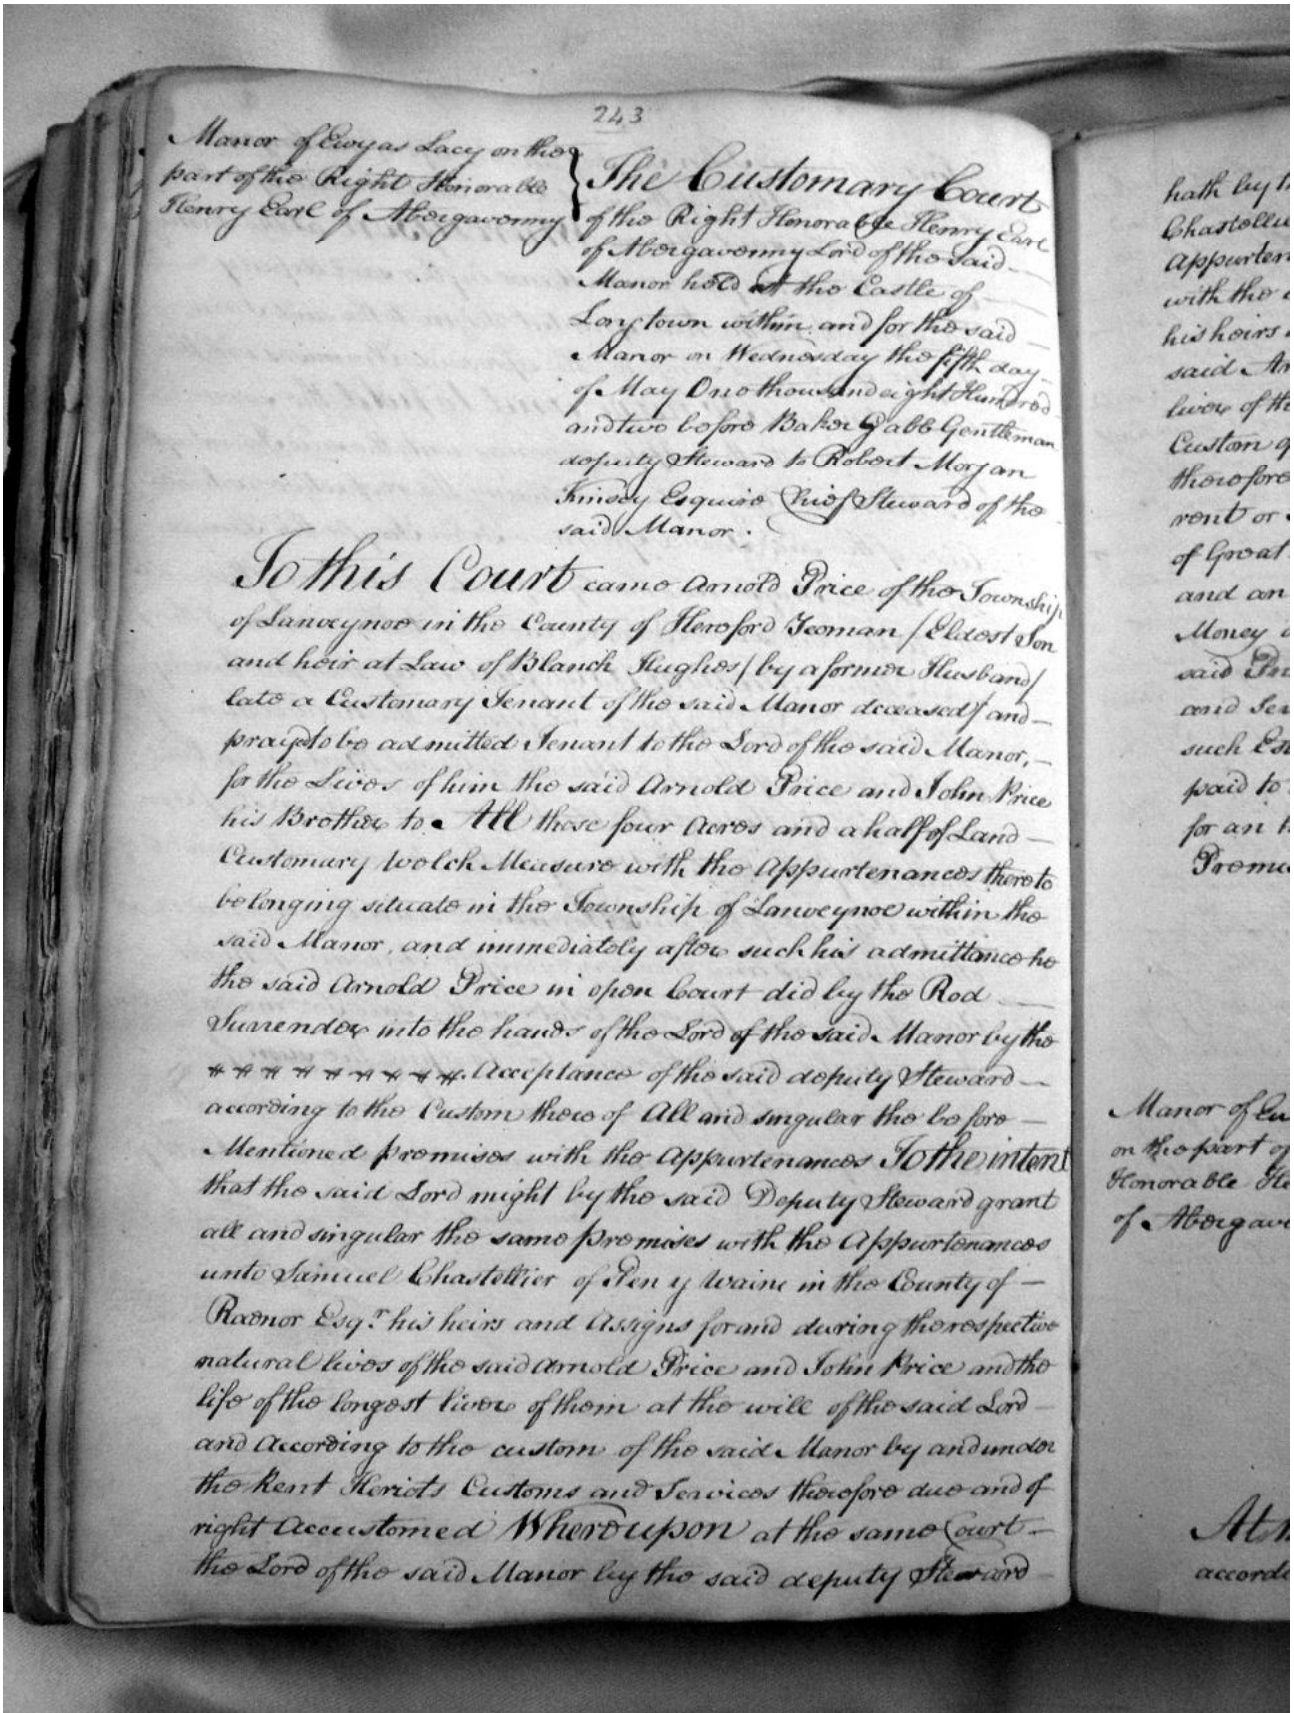 243
Manor of Ewyas Lacy on the
part of the Right Honorable
Henry Earl of Abergavenny
The Customary Court
of the Right Honorable Henry Earl
of Abergavenny Lord of the said
Manor held at the Castle of
Longtown within and for the said
Manor on Wednesday the fifth day
of May One thousand eight Hundred
and two before Baker Gabb Gentleman
deputy Steward to Robert Morgan
Kinsey Esquire Chief Steward of the
said Manor.
To this Court came Arnold Price of the Township
of Lanveynoe in the County of Hereford Yeoman / Eldest Son
and heir at Law of Blanch Hughes / by a former Husband /
late a Customary Tenant of the said Manor deceased / and
prayed to be admitted Tenant to the Lord of the said Manor,
for the Lives of him the said Arnold Price and John Price
his Brother to All those four Acres and a half of Land
Customary Welch Measure with the Appurtenances thereto
belonging situate in the Township of Lanveynoe within the
said Manor, and immediately after such his admittance he
the said Arnold Price in open Court did by the Rod
Surrender into the hands of the Lord of the said Manor by the
Acceptance of the said deputy Steward
according to the Custom there of All and singular the before
Mentioned premises with the Appurtenances To the intent
that the said Lord might by the said Deputy Steward grant
all and singular the same premises with the Appurtenances
unto Samuel Chastellier of Pen y Waine in the County of
Radnor Esqr. his heirs and Assigns for and during the respective
natural lives of the said Arnold Price and John Price and the
life of the longest liver of them at the will of the said Lord
and According to the custom of the said Manor by and under
the Rent Heriots Customs and Services therefore due and of
right Accustomed Whereupon at the same Court
the Lord of the said Manor by the said deputy Steward
hath by th
Chastellie
Appurten
with the
his heirs
said Ar
liver of th
Custom of
therefore
rent or
of Great
and an
Money
said
and Ser
such Es
paid to
for an
Premis
Manor of Ew
on the part of
Honorable He
of Abergave
At
accordi